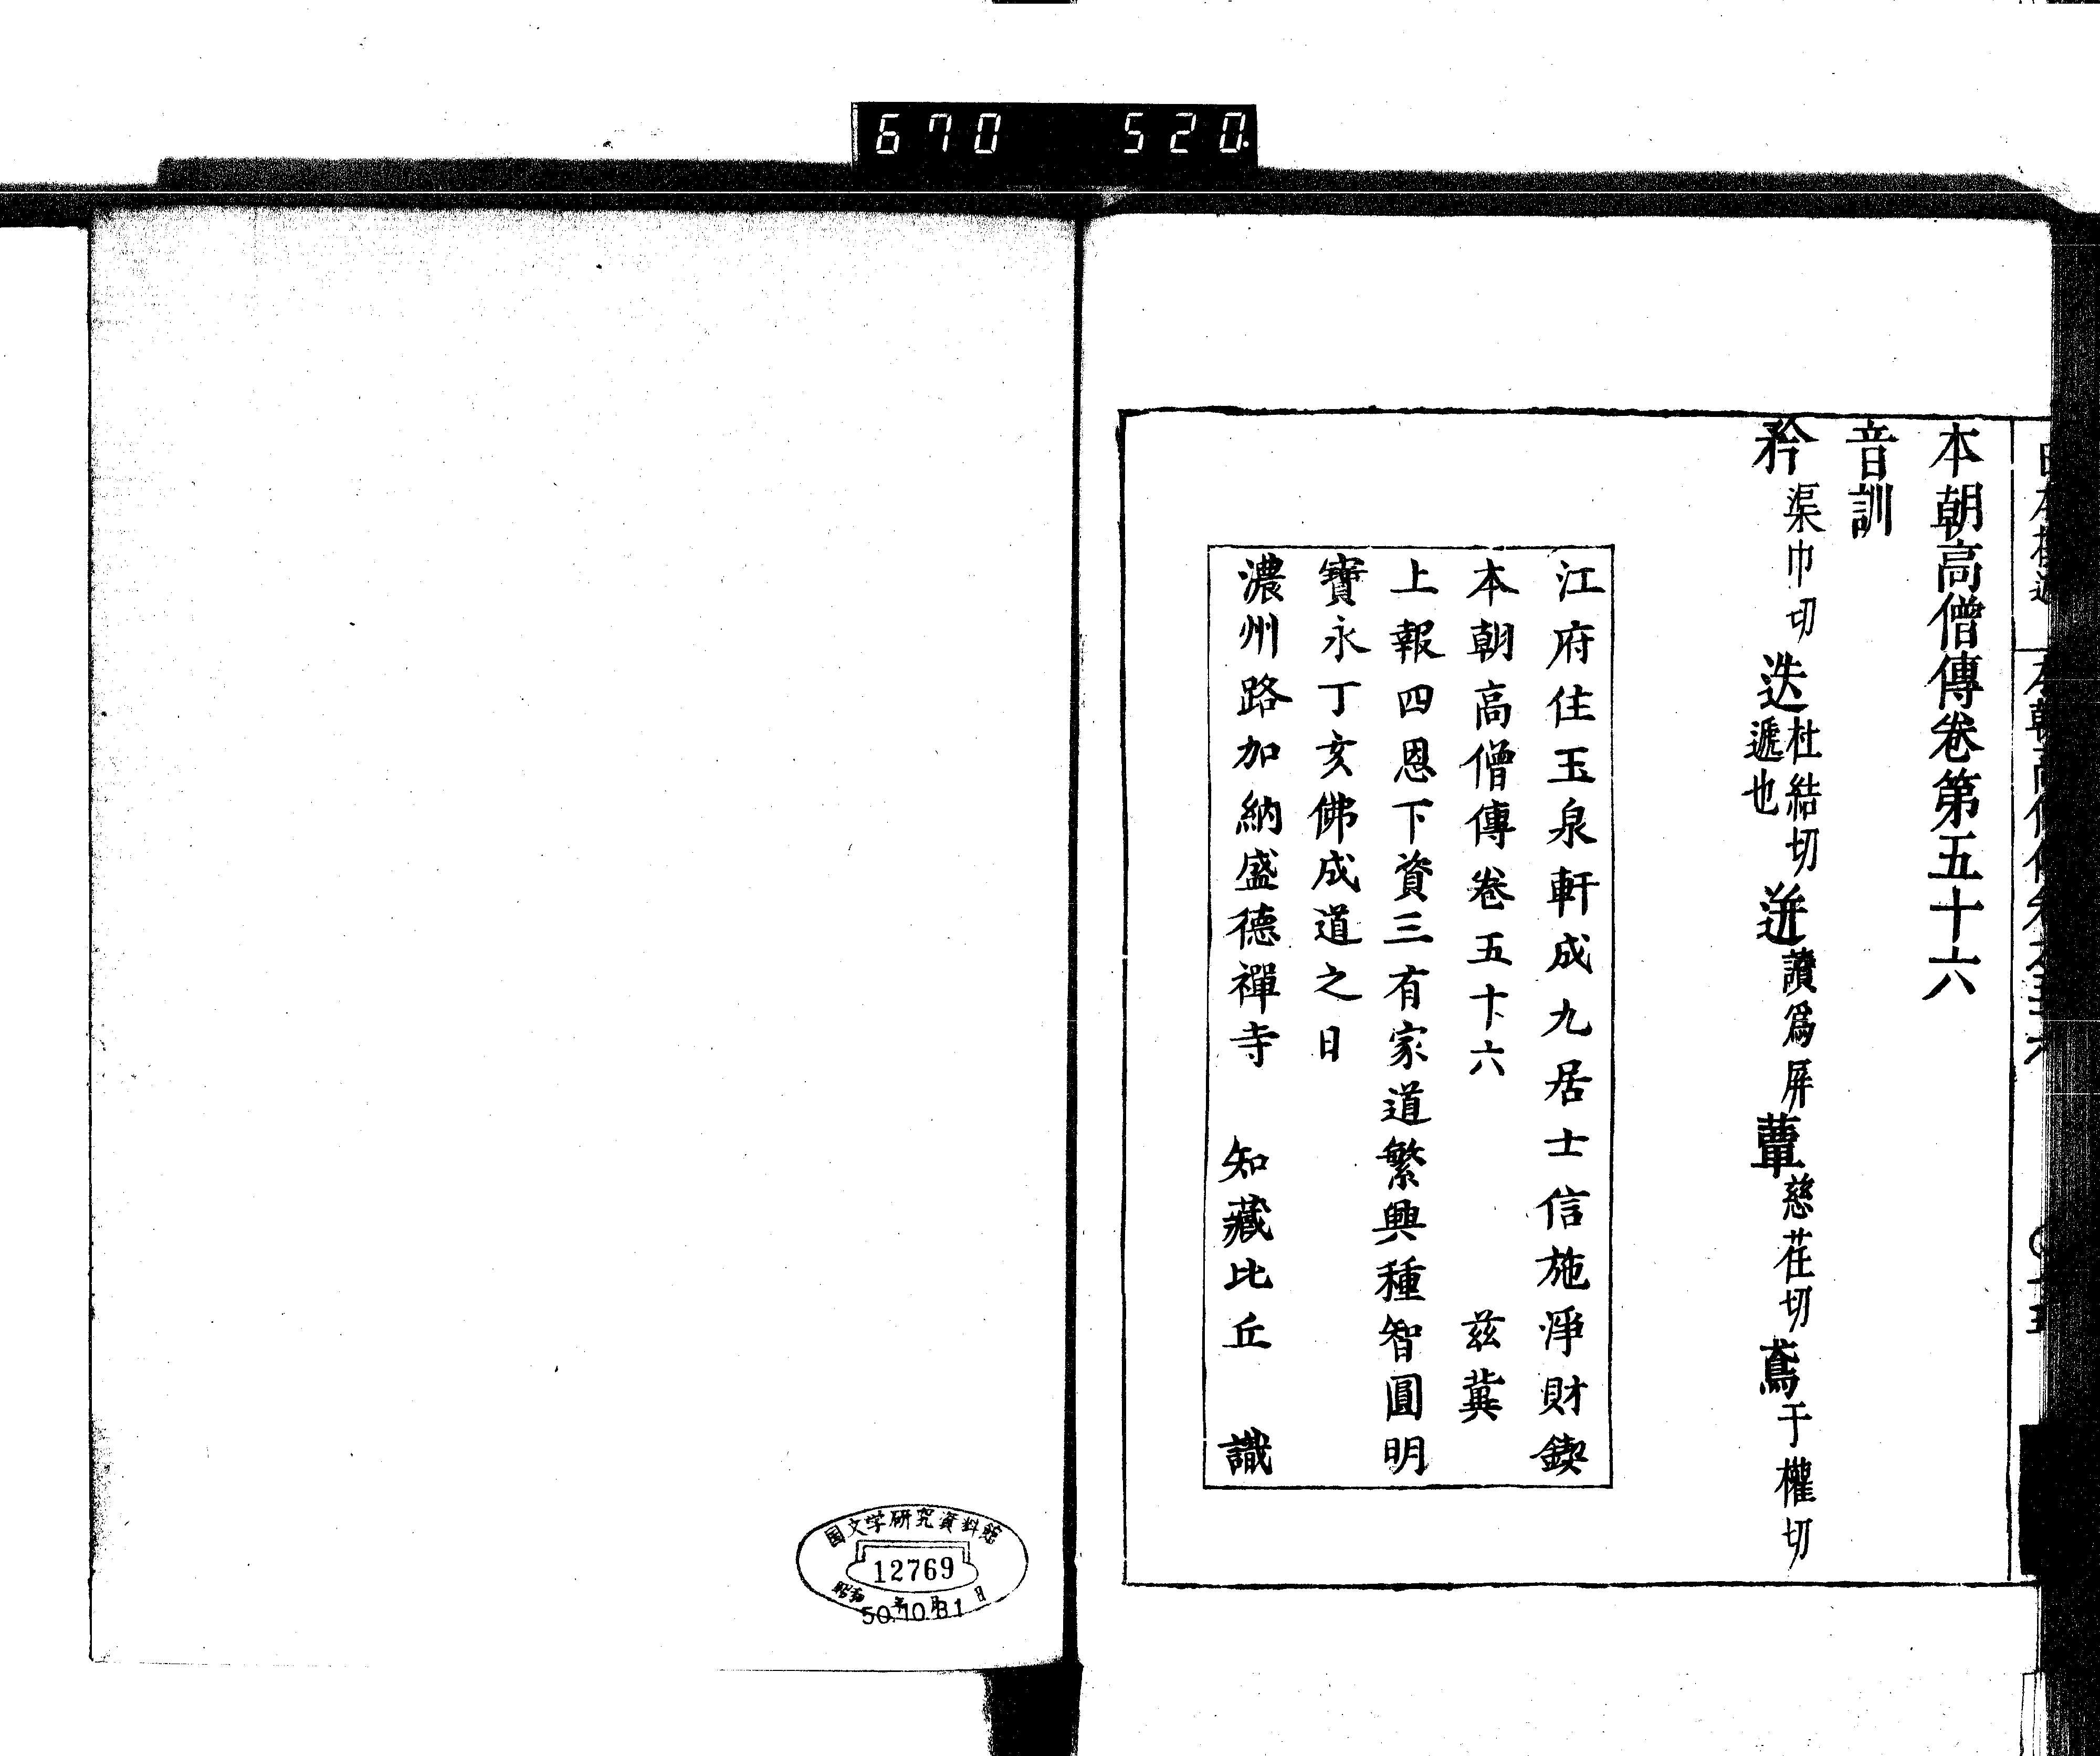 670 520
本朝高僧傳卷第五十六
音訓
矜 渠巾切 迭 杜結切 遞也 逬 讀爲屏 蕈 慈荏切 鳶 于權切
江府住玉泉軒成九居士信施淨財鍥
本朝高僧傳卷五十六 茲冀
上報四恩下資三有家道繁興種智圓明
寶永丁亥佛成道之日
濃州路加納盛德禪寺 知藏比丘 識
国文学研究資料館
12769
昭和 年 月 日
50.10.31